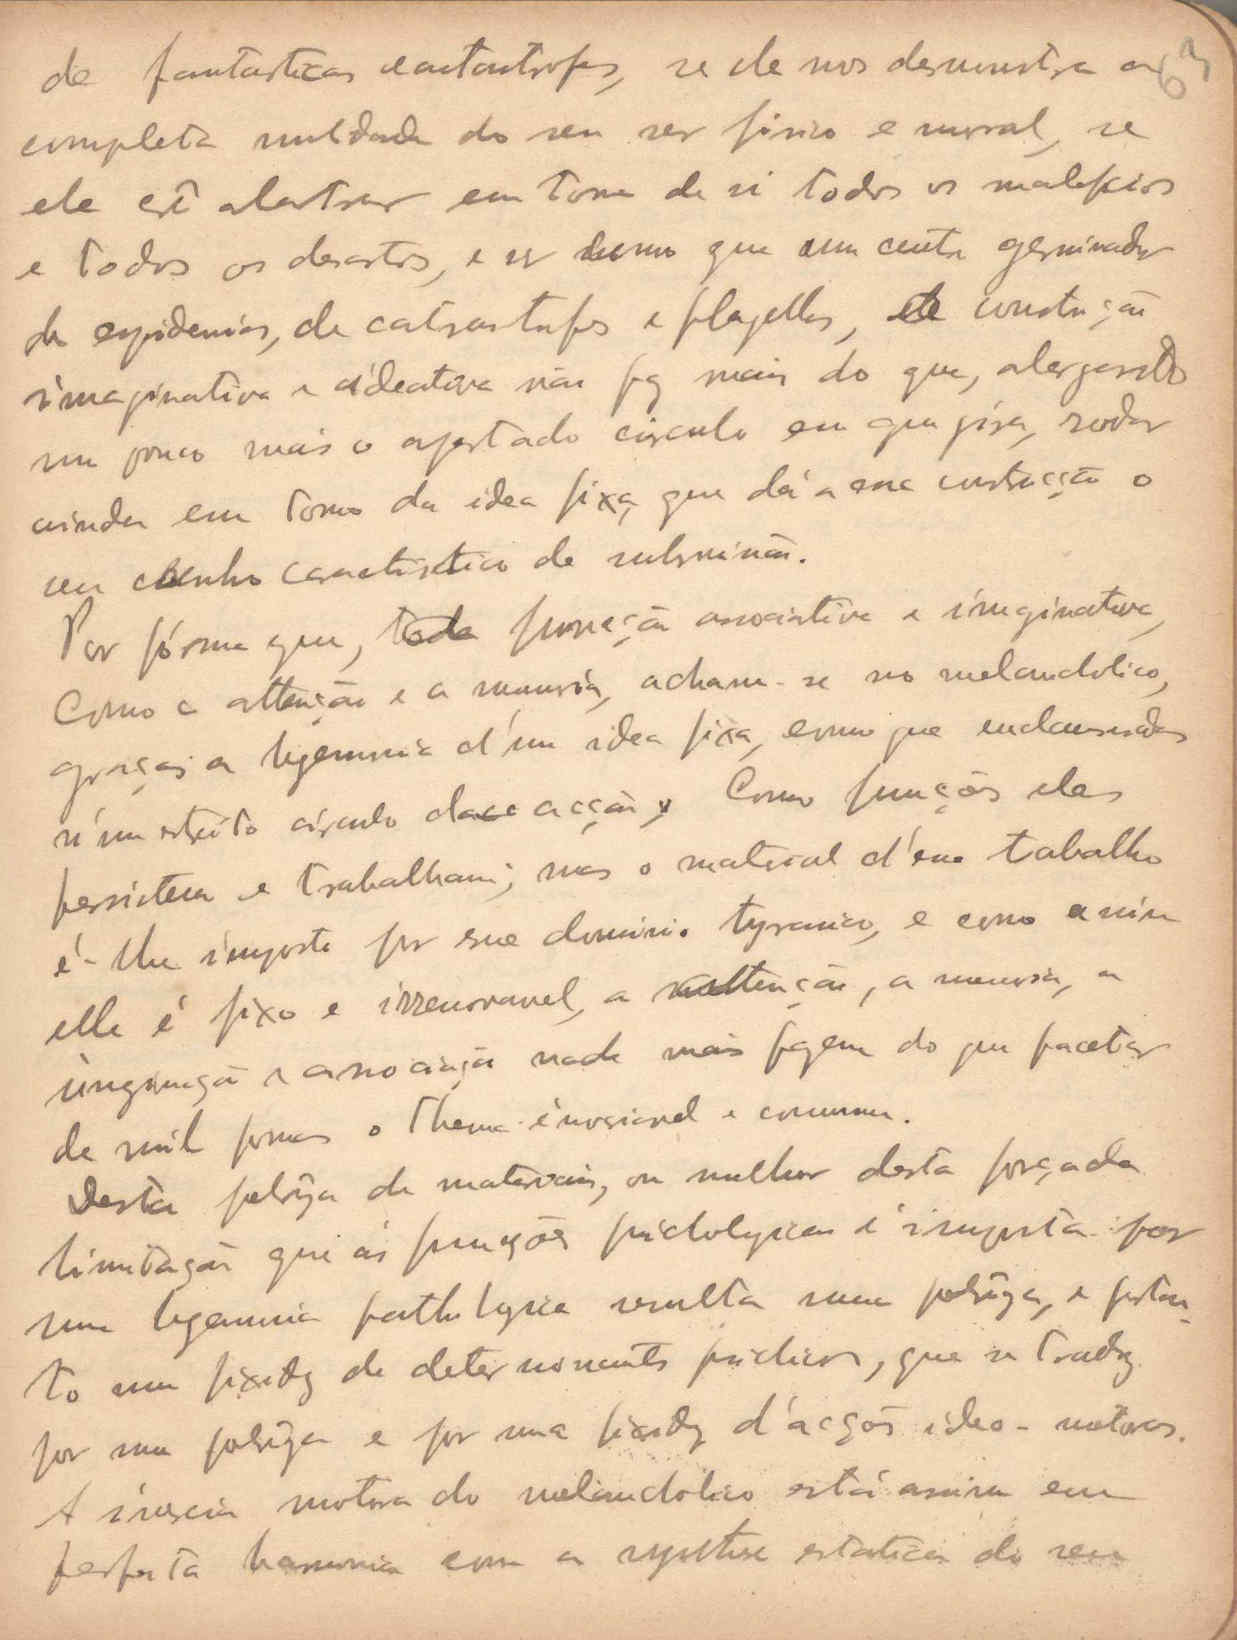 63
de fantasticas catastrofes, se ele nos demonstra a
completa nullidade do seu ser fisico e moral, se
ele crê alastrar em torno de si todos os maleficios
e todos os desastres, e ser como que um centro germinador
de epidemias, de catastrofes e flagellos, ele construção
imaginativa e ideativa não faz mais do que, alargando
um pouco mais o apertado circulo em que gira, rodar
ainda em torno da idea fixa, que dá a essa construcção o
seu cunho caracteristico de submissão.
Por fórma que, toda funcção associativa e imaginativa,
Como a attenção e a memoria, acham-se no melancholico,
graças a hegemonia d'uma idea fixa, como que enclausuradas
n'um estreito circulo de acção. Como funções elas
persistem e trabalham; mas o material d'esse trabalho
é-lhe imposto por esse dominio tyranico, e como assim
elle é fixo e irremovavel, a attenção, a memoria, a
imaginação e associação nada mais fazem do que facetar
de mil formas o thema invariavel e commum.
Desta pobrêza de materiais, ou melhor desta forçada
limitação que ás funções psichologicas é imposta por
uma hegemonia pathologica resulta uma pobrêza, e portan-
to uma fixidez de determinantes psichicos, que se traduz
por uma pobrêza e por uma fixidez d'acções ideo-motoras.
A inercia motora do melancholico está assim em
perfeita harmonia com a synthese estatica do seu